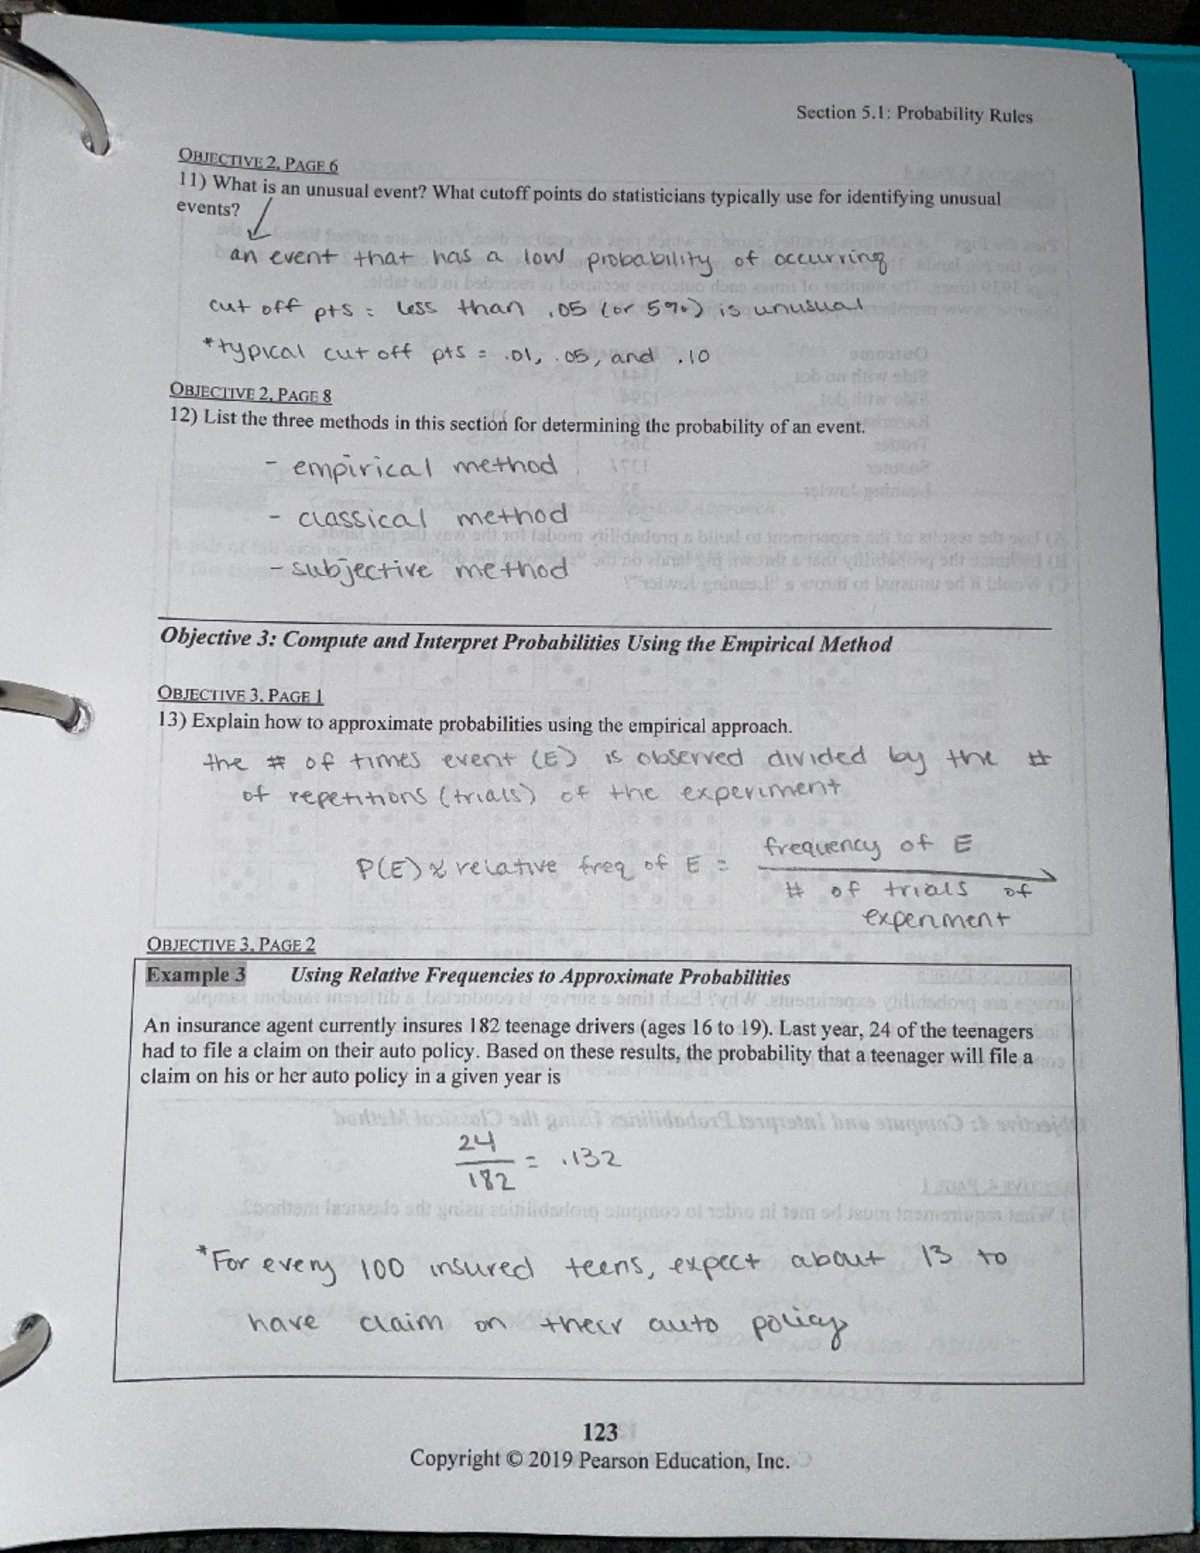 Section 5.1: Probability Rules
OBJECTIVE 2, PAGE 6
11) What is an unusual event? What cutoff points do statisticians typically use for identifying unusual
events?
an event that has a low probability of occurring
cut off pts = less than .05 (or 5%) is unusual
*typical cut off pts = .01, .05, and .10
OBJECTIVE 2, PAGE 8
12) List the three methods in this section for determining the probability of an event.
- empirical method
- classical method
- subjective method
Objective 3: Compute and Interpret Probabilities Using the Empirical Method
OBJECTIVE 3, PAGE 1
13) Explain how to approximate probabilities using the empirical approach.
the # of times event (E) is observed divided by the #
of repetitions (trials) of the experiment
P(E) ≈ relative freq of E = frequency of E
# of trials of
experiment
OBJECTIVE 3, PAGE 2
Example 3 Using Relative Frequencies to Approximate Probabilities
An insurance agent currently insures 182 teenage drivers (ages 16 to 19). Last year, 24 of the teenagers
had to file a claim on their auto policy. Based on these results, the probability that a teenager will file a
claim on his or her auto policy in a given year is
24
182 = .132
*For every 100 insured teens, expect about 13 to
have claim on their auto policy
123
Copyright © 2019 Pearson Education, Inc.